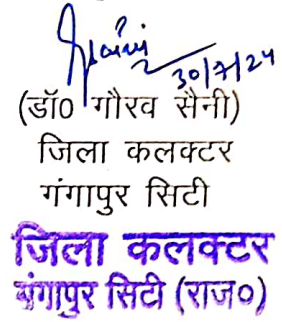 30/7/24
(डॉ0 गौरव सैनी)
जिला कलक्टर
गंगापुर सिटी
जिला कलक्टर
गंगापुर सिटी (राज०)